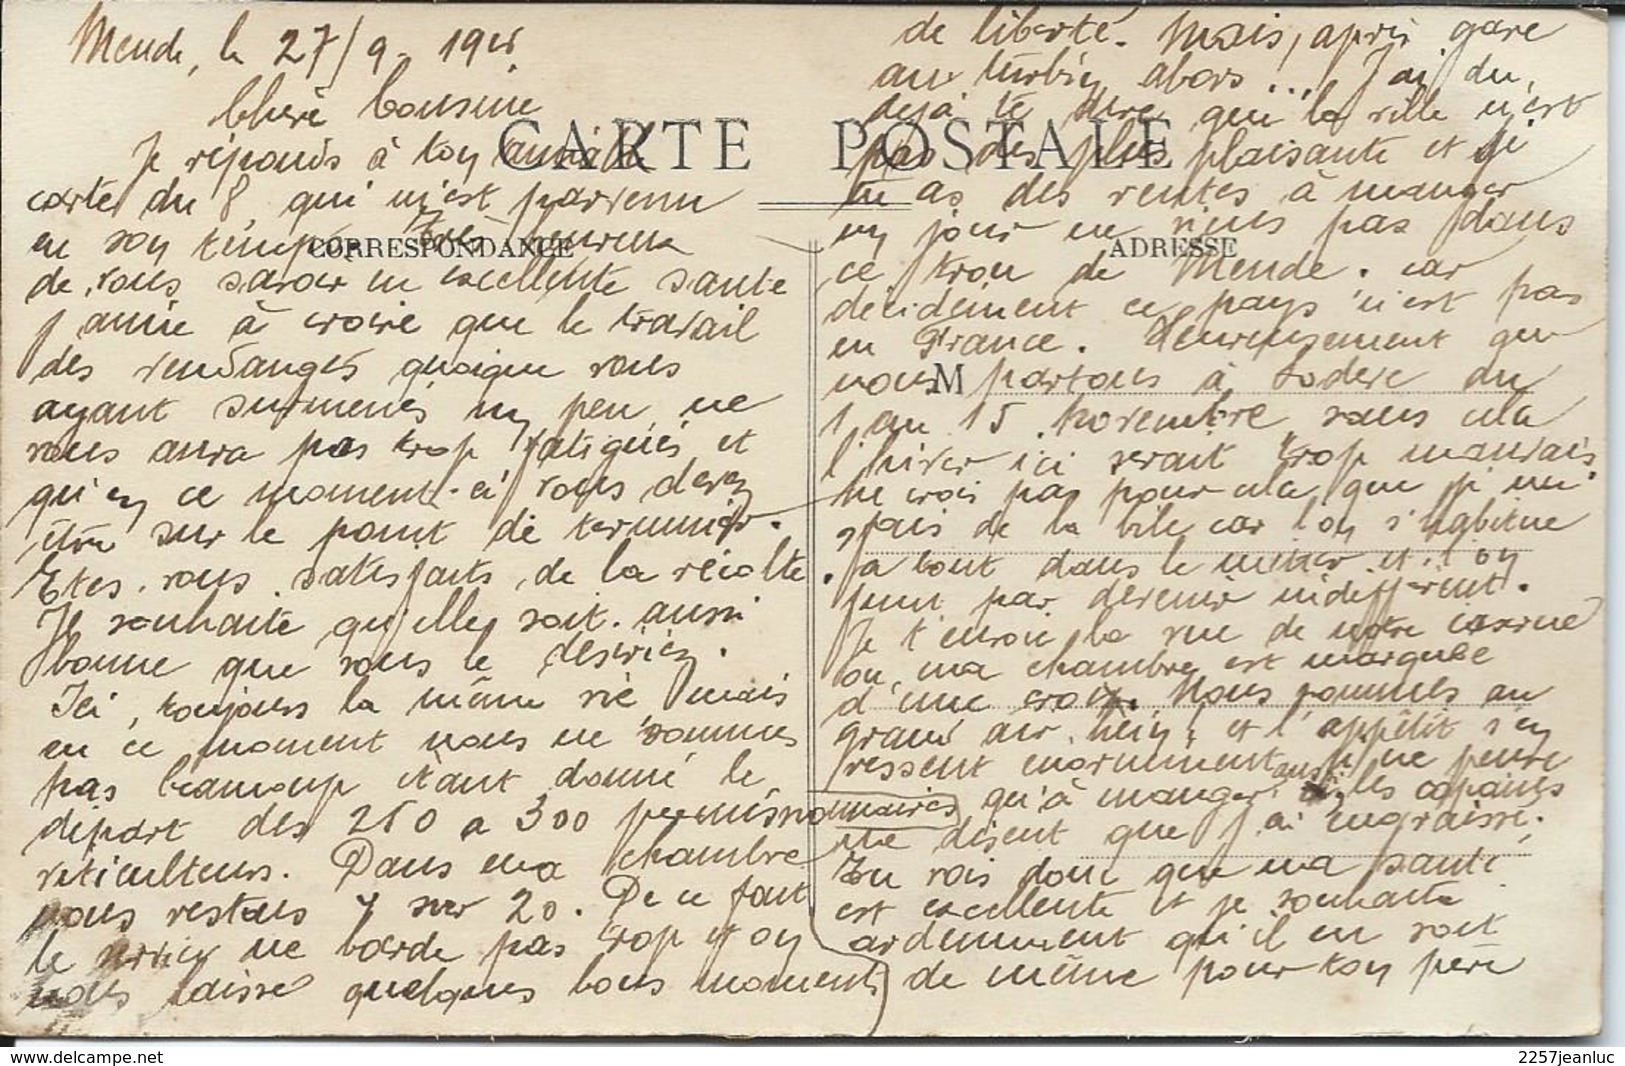 Mende, le 27/9-19
Chère Cousine
CARTE POSTALE
Je réponds à ton
carte du 8, qui m'est parvenu
en son temps. Très heureux
CORRESPONDANCE
de vous savoir en excellente santé
j'aime à croire que le travail
des vendanges quoique vous
ayant surmenés un peu ne
vous aura pas trop fatigués et
qu'en ce moment-ci vous devez
être sur le point de terminer.
Etes-vous satisfaits de la récolte.
Je souhaite qu'elle soit aussi
bonne que vous le désiriez.
Ici, toujours la même vie mais
en ce moment nous ne sommes
pas beaucoup étant donné le
départ des 250 a 300 permissionnaires
viticulteurs. Dans ma chambre
nous restons 7 sur 20. De ce fait
le ne barde pas trop et on
nous laisse quelques bons moments
de liberté. Mais, après gare
au turbin alors... J'ai du,
déjà te dire que la ville n'est
pas des plus plaisante et si
tu as des rentes à manger
un jour ne viens pas dans
ADRESSE
ce trou de Mende. car
décidément ce pays n'est pas
en France. Heureusement que
nous partons à Lodève du
M
1 au 15 Novembre sans cela
l'hiver ici serait trop mauvais
Ne crois pas pour cela que je me
fais de la bile car l'on s'habitue
a tout dans le métier et l'on
finit par devenir indifférent.
Je t'envoie la vue de notre caserne
ou ma chambre est marquée
d'une croix. Nous sommes au
grand air hein! et l'appétit s'en
ressent énormément aussi je ne pense
qu'à manger les copains
me disent que j'ai engraissé.
Tu vois donc que ma santé
est excellente et je souhaite
ardemment qu'il en soit
de même pour ton père
www.delcampe.net
2257jeanluc